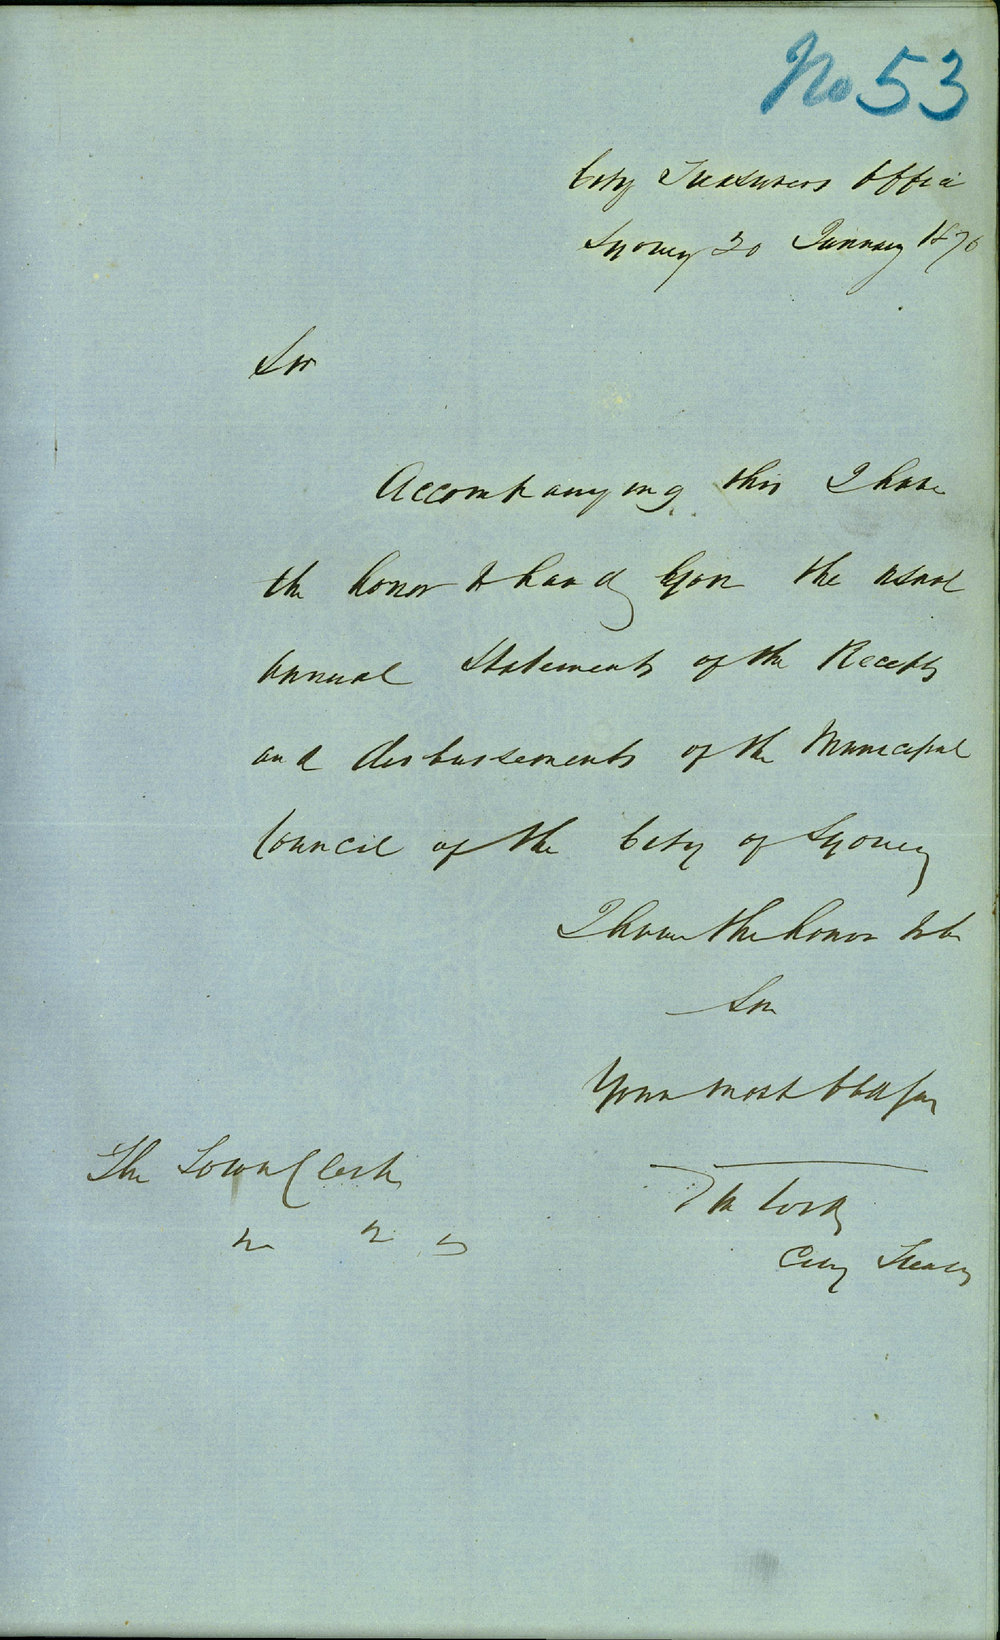 No 53
City Treasurers Office
Sydney 20 January 1876
Sir
Accompanying this I have
the honor to hand you the usual
annual Statements of the Receipts
and disbursements of the Municipal
Council of the City of Sydney
I have the honor to be
Sir
Your most Obt Ser
The Town Clerk
City Treasr